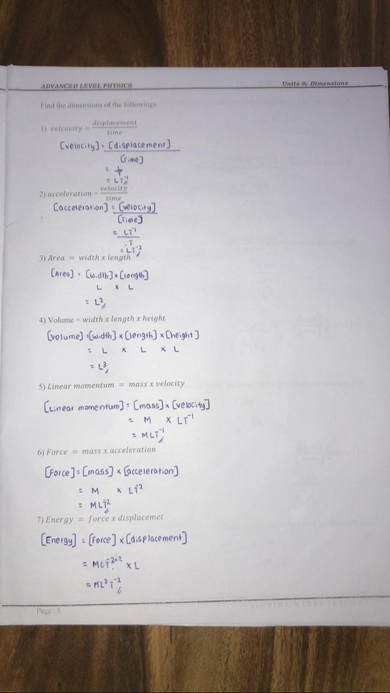 ADVANCED LEVEL PHYSICS Units & Dimensions
Find the dimensions of the followings
1) velcocity = displacement / time
[velocity] = [displacement]
[time]
= L
= LT⁻¹
2) acceleration = velocity / time
[acceleration] = [velocity]
[time]
= LT⁻¹
T
= LT⁻²
3) Area = width x length
[Area] = [width] x [length]
L x L
= L²
4) Volume = width x length x height
[volume] = [width] x [length] x [height]
= L x L x L
= L³
5) Linear momentum = mass x velocity
[Linear momentum] = [mass] x [velocity]
= M x LT⁻¹
= MLT⁻¹
6) Force = mass x acceleration
[Force] = [mass] x [acceleration]
= M x LT⁻²
= MLT⁻²
7) Energy = force x displacemet
[Energy] = [Force] x [displacement]
= MLT⁻² x L
= ML²T⁻²
Page